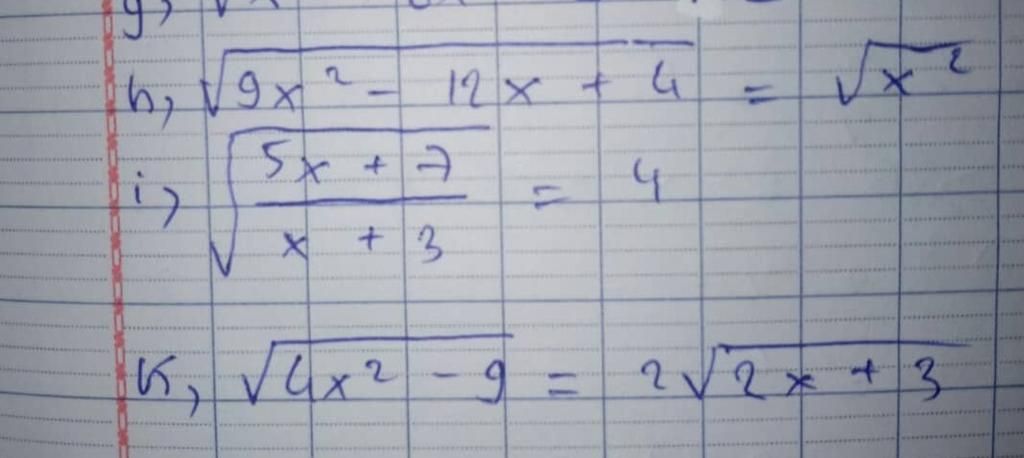 h, √(9x² - 12x + 4) = √(x²)
i, √((5x + 7)/(x + 3)) = 4
K, √(4x² - 9) = 2√(2x + 3)